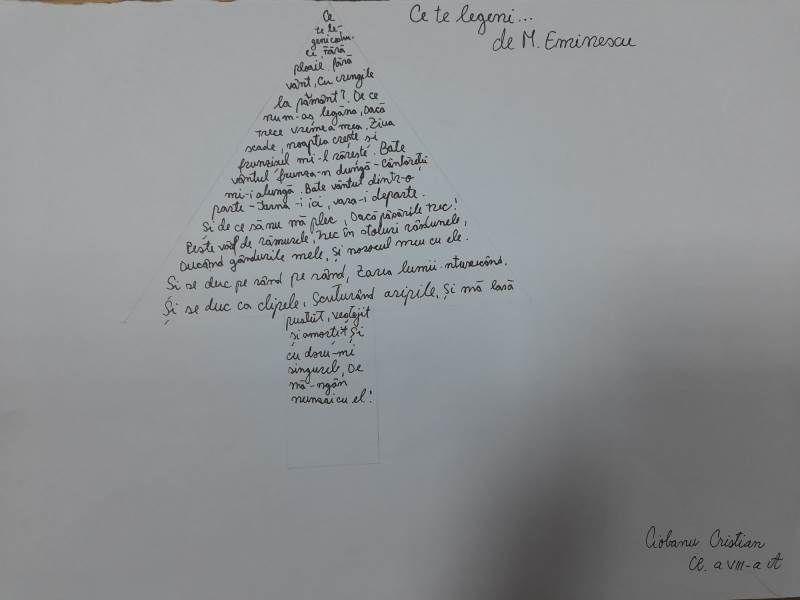 Ce te legeni...
de M. Eminescu
Ce
te le-
geni codru-
le, fără
ploaie fără
vânt, Cu crengile
la pământ? De ce
num-aș legăna, Dacă
trece vremea mea. Ziua
scade, noaptea crește și
frunzișul mi-l rărește. Bate
vântul frunza-n dungă-Cântăreții
mi-i alungă. Bate vântul dintr-o
parte-Iarna-i ici, vara-i departe.
Și de ce să nu mă plec, Dacă păsările trec!
Peste vârf de rămurele, Trec în stoluri rândunele,
Ducând gândurile mele, Și norocul meu cu ele.
Și se duc pe rând pe rând, Zarea lumii-ntunecând,
Și se duc ca clipele, Scuturând aripile, Și mă lasă
pustiit, veștejit
și amorțit Și
cu doru-mi
singurel, De
mă-ngân
numai cu el!
Ciobanu Cristian
Cl. a VIII-a A